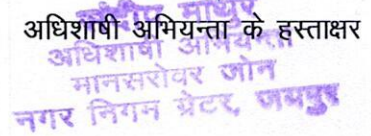 माथुर
अधिशाषी अभियन्ता के हस्ताक्षर
अधिशाषी अभियन्ता
मानसरोवर जोन
नगर निगम ग्रेटर, जयपुर